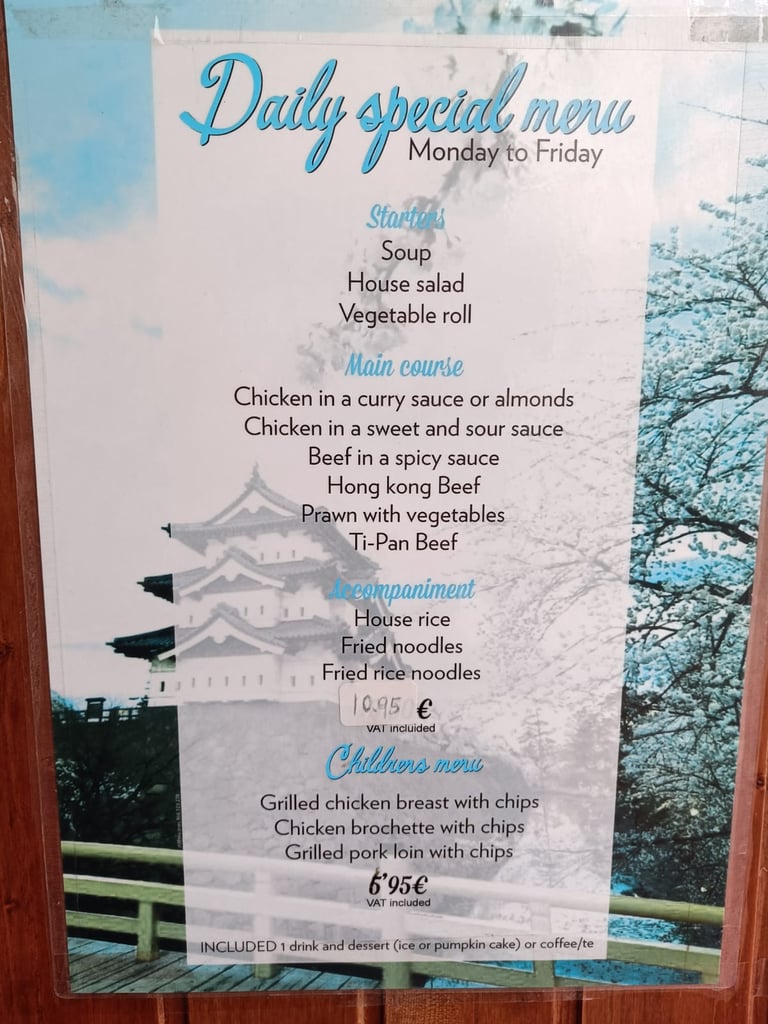 Daily special menu
Monday to Friday
Starters
Soup
House salad
Vegetable roll
Main course
Chicken in a curry sauce or almonds
Chicken in a sweet and sour sauce
Beef in a spicy sauce
Hong kong Beef
Prawn with vegetables
Ti-Pan Beef
Accompaniment
House rice
Fried noodles
Fried rice noodles
10.95 €
VAT incluided
Childrens menu
Grilled chicken breast with chips
Chicken brochette with chips
Grilled pork loin with chips
6'95€
VAT included
INCLUDED 1 drink and dessert (ice or pumpkin cake) or coffee/te